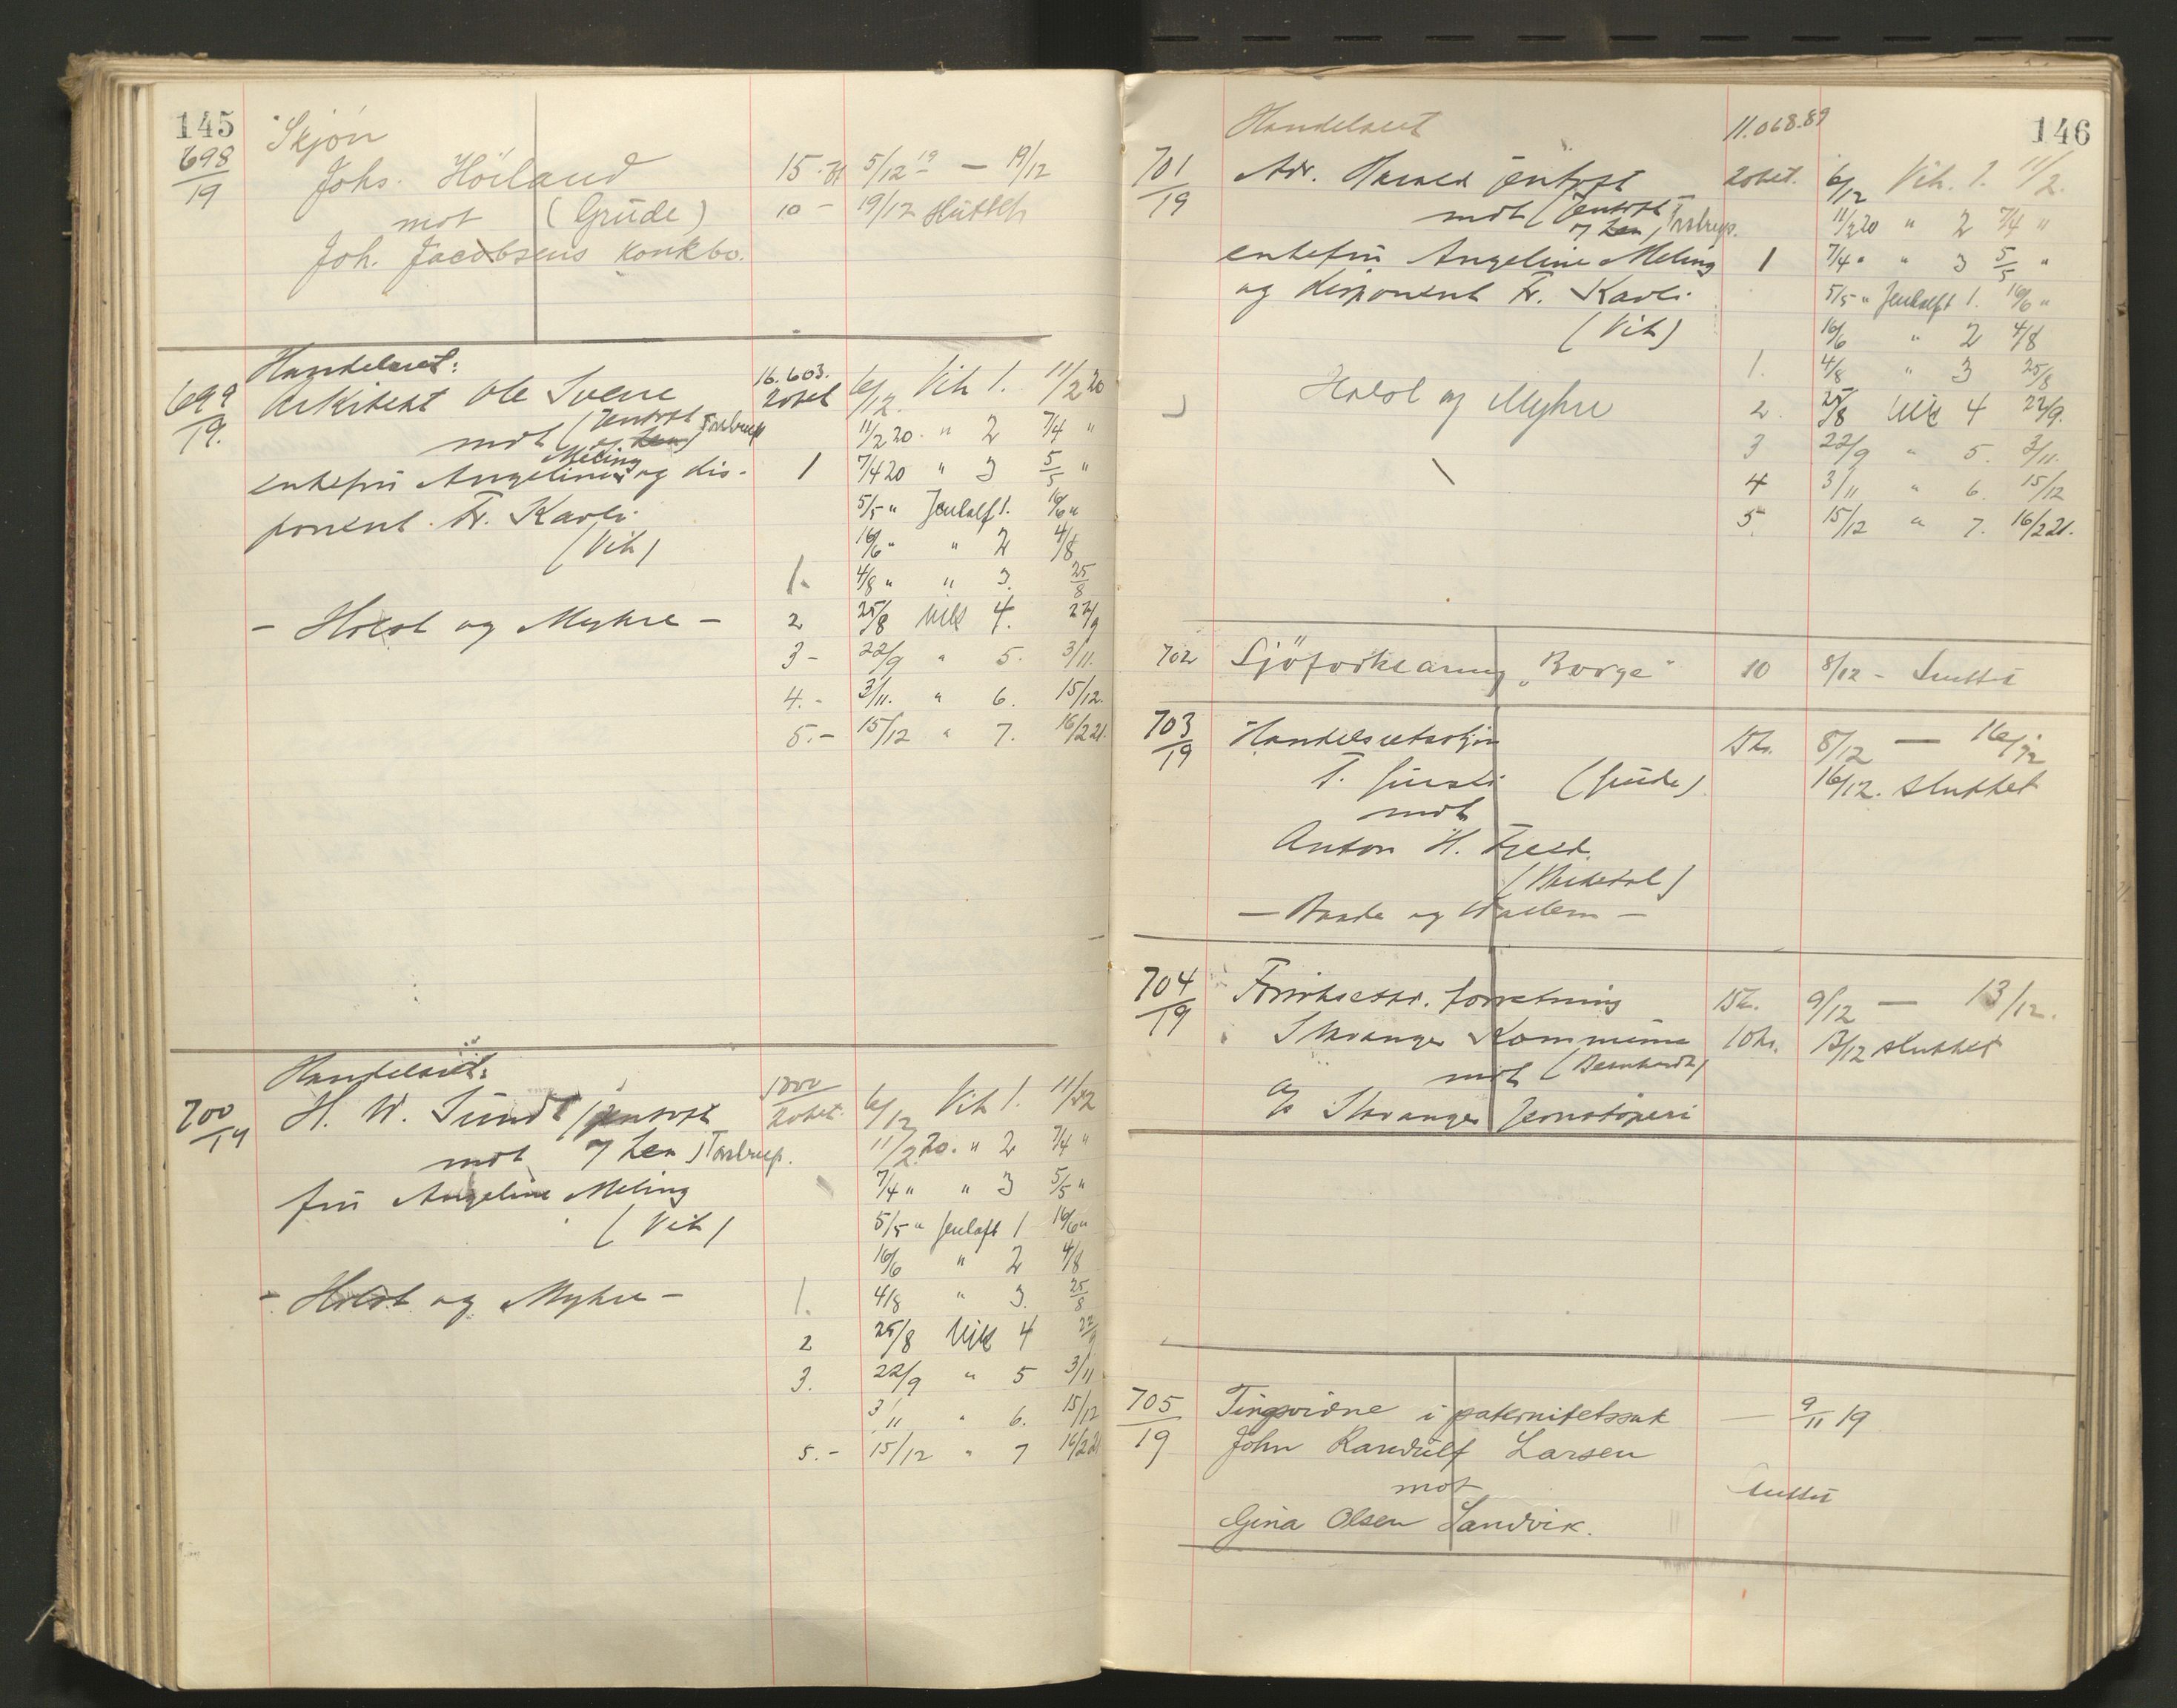 145
698/19 Skjøn
Johs. Höiland 15.- 5/12 19 — 19/12
mot (Grude) 10 - 19/12 sluttet
Joh. Jacobsens konkbo.
Handelsret: 16.603.
699/19. Arkitekt Ole Svene 6/12. Vik 1. 11/2 20
mot (Jentoft Tostrup 11/2 20. " 2 7/4 "
enkefru Angeline Meling og dis- 1 7/4 20 " 3 5/5 "
ponent Fr. Kavli 5/5 " Jentoft 1. 16/6 "
(Vik) 16/6 " " 2 4/8
1. 4/8 " " 3. 25/8
- Holst og Myhre - 2 25/8 Vik 4. 22/9
3- 22/9 " 5. 3/11.
4.- 3/11. " 6. 15/12.
5.- 15/12 " 7. 16/2 21.
Handelsret:
700/19 H. W. Sundt (Jentoft 6/12 Vik 1. 11/2
mot Tostrup. 11/2 20. " 2 7/4 "
fru Angeline Meling 7/4 " " 3 5/5 "
(Vik) 5/5 " Jentoft 1 16/6 "
16/6 " 2 4/8
- Holst og Myhre - 1. 4/8 " 3. 25/8
2 25/8 Vik 4 22/9
3. 22/9 " 5 3/11
3/11 " 6. 15/12
5.- 15/12 " 7 16/2 21
146
Handelsret 11.068.89
701/19 Adv. Harald Jentoft 6/12 Vik. 1. 11/2.
mot (Jentoft Tostrup. 11/2 20 " 2 7/4 "
enkefru Angeline Meling 1 7/4 " " 3 5/5 "
og disponent Fr. Kavli 5/5 " Jentoft 1. 16/6 "
(Vik) 16/6 " 2 4/8
1. 4/8 " 3 25/8
Holst og Myhre 2. 25/8 Vik 4 22/9.
3 22/9 " 5. 3/11.
4 3/11 " 6. 15/12
5. 15/12 " 7. 16/2 21.
702 Sjöforklaring „Borge" 10 8/12 - Sluttet
703/19 Handelsretsskjøn 15 kr. 8/12 — 16/12
T. (Grude) 16/12. sluttet
mot
Anton H.
- og Wallem -
704/19 forretning 15 kr. 9/12 — 13/12.
Stavanger Kommune 10 kr. 13/12 sluttet
mot (Bernhardt)
A/S Stavanger Jernstøperi
705/19 Tingsvidne i paternitetssak — 9/11 19
John Randulf Larsen
mot Sluttet
Gina Olsen Sandvik.